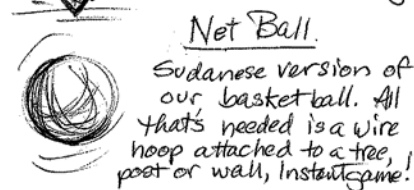 Net Ball.
Sudanese version of
our basketball. All
that's needed is a wire
hoop attached to a tree,
post or wall, Instant game!